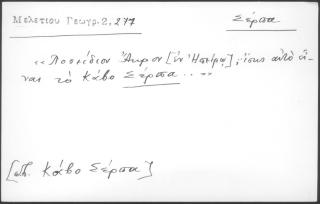 Μελετίου Γεωγρ.2, 277
Σέρπα
«Ποσείδιον Ἄκρον [ἐν Ἠπείρῳ], ἴσως αὐτὸ εἶ-
ναι τὸ Κάβο Σέρπα...»
Κάβο Σέρπα]